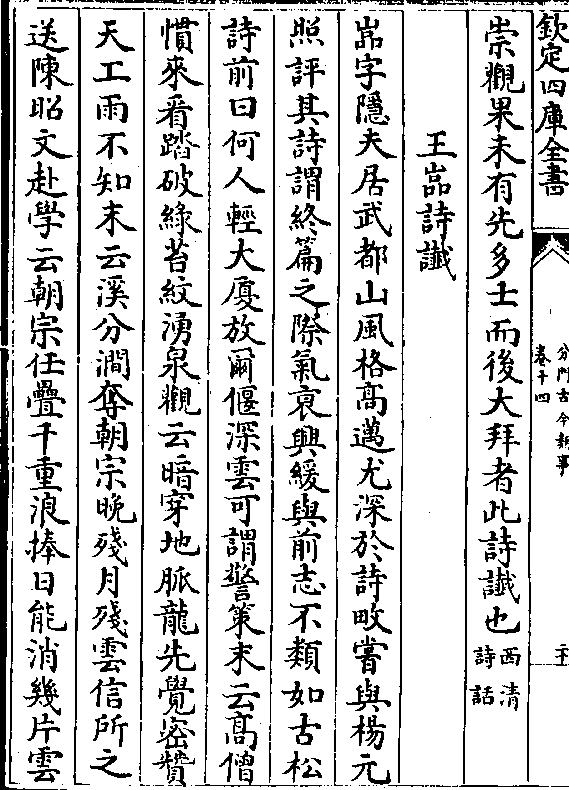 欽定四庫全書
分門古今類事
卷十四
二十
崇觀果未有先多士而後大拜者此詩䜟也西清詩話
王嵓詩䜟
嵓字隱夫居武都山風格髙邁尤深於詩畋嘗與楊元
照評其詩謂終篇之際氣衰興緩與前志不類如古松
詩前曰何人輕大厦放爾偃深雲可謂警策末云髙僧
慣來看踏破緑苔紋湧泉觀云暗穿地脈龍先覺密贊
天工雨不知末云溪分澗奪朝宗晚殘月殘雲信所之
送陳昭文赴學云朝宗任疊千重浪捧日能消幾片雲